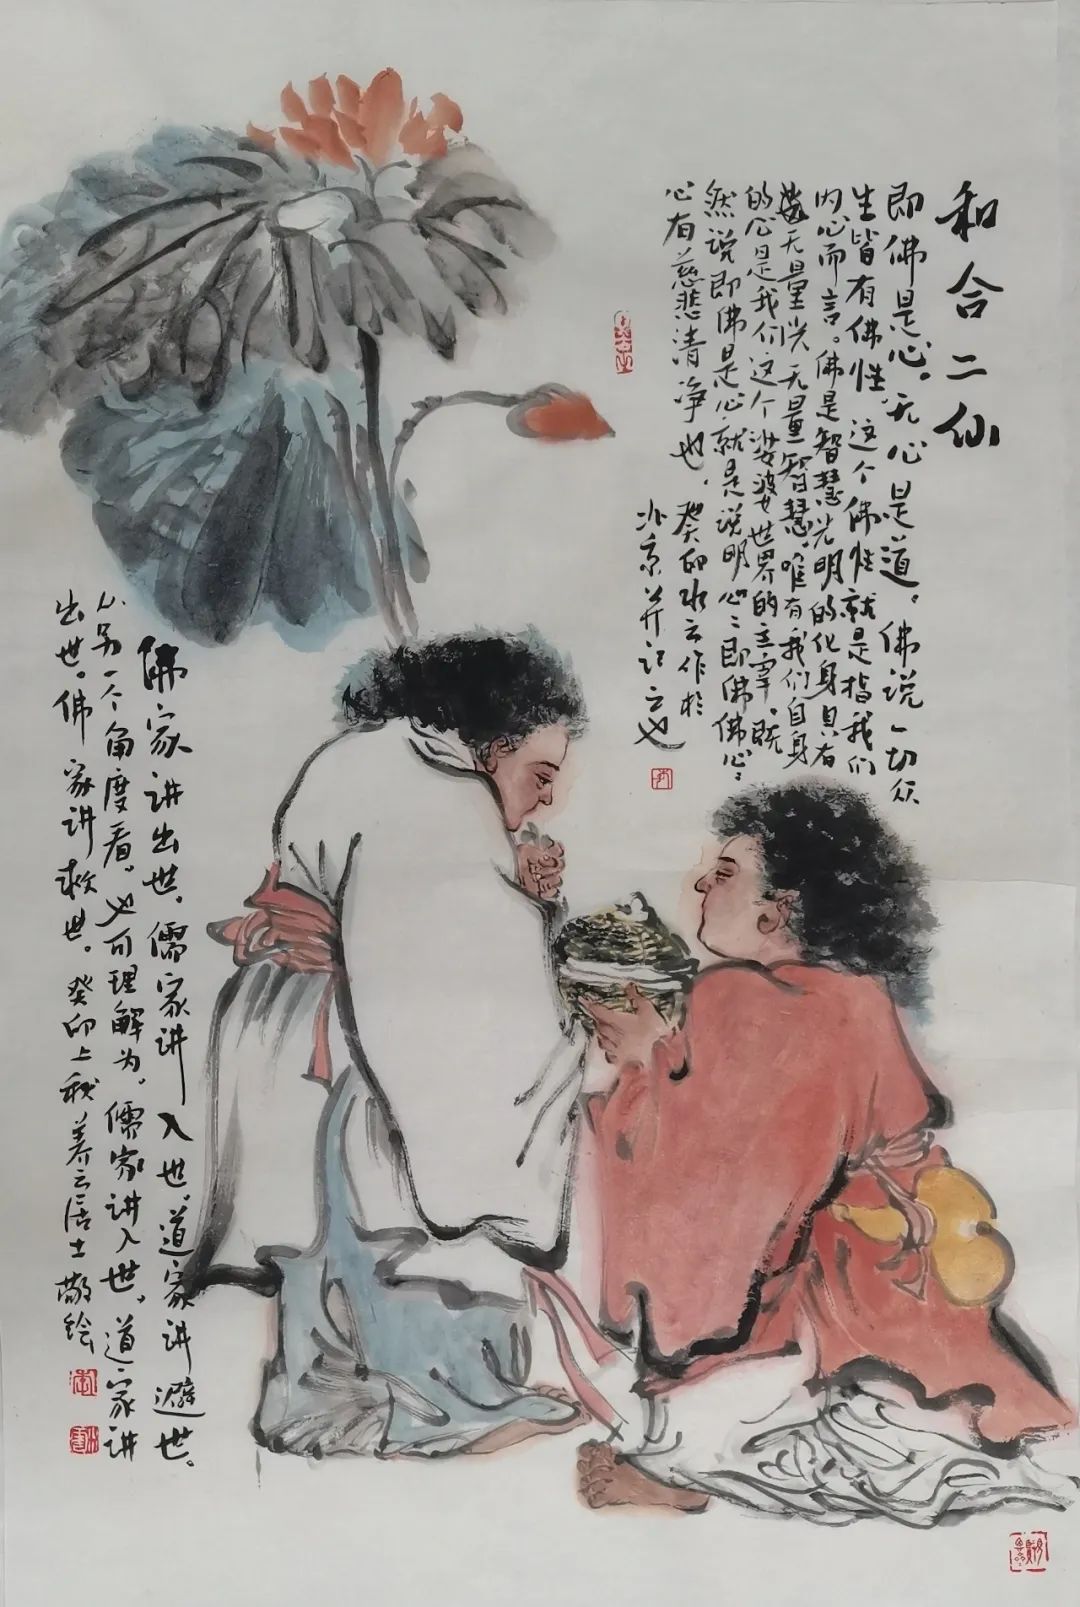 和合二仙
即佛是心。无心是道。佛说一切众
生皆有佛性，这个佛性就是指我们
内心而言。佛是智慧光明的化身具有
无量光无量智慧。唯有我们自身
的心是我们这个娑婆世界的主宰。既
然说即佛是心就是说明心心即佛佛心
心有慈悲清净也。癸卯水云作于
北京并记之也
佛家讲出世，儒家讲入世，道家讲避世。
从另一个角度看，也可理解为，儒家讲入世，道家讲
出世。佛家讲救世。癸卯上秋养云居士敬绘